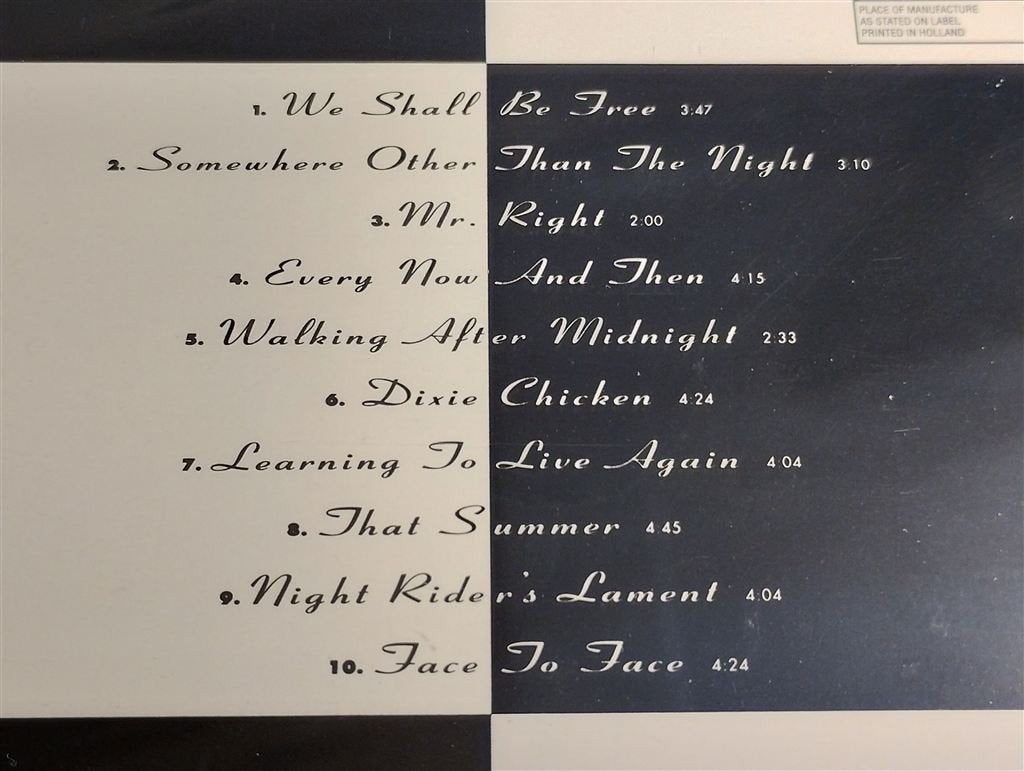 PLACE OF MANUFACTURE
AS STATED ON LABEL
PRINTED IN HOLLAND
1. We Shall Be Free 3:47
2. Somewhere Other Than The Night 3:10
3. Mr. Right 2:00
4. Every Now And Then 4:15
5. Walking After Midnight 2:33
6. Dixie Chicken 4:24
7. Learning To Live Again 4:04
8. That Summer 4:45
9. Night Rider's Lament 4:04
10. Face To Face 4:24